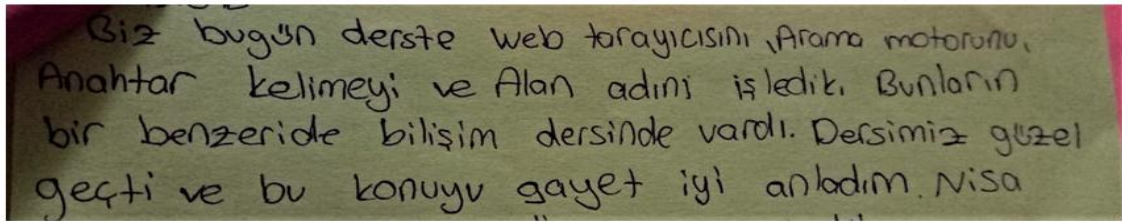 Biz bugün derste web tarayıcısını, Arama motorunu,
Anahtar kelimeyi ve Alan adını işledik. Bunların
bir benzeride bilişim dersinde vardı. Dersimiz güzel
geçti ve bu konuyu gayet iyi anladım. Nisa